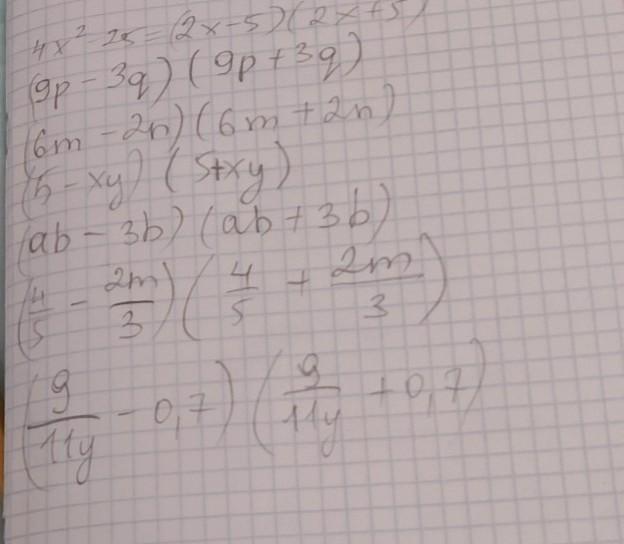 4x² - 25 = (2x - 5)(2x + 5)
(9p - 3q)(9p + 3q)
(6m - 2n)(6m + 2n)
(5 - xy)(5 + xy)
(ab - 3b)(ab + 3b)
(4/5 - 2m/3)(4/5 + 2m/3)
(9/11y - 0,7)(9/11y + 0,7)